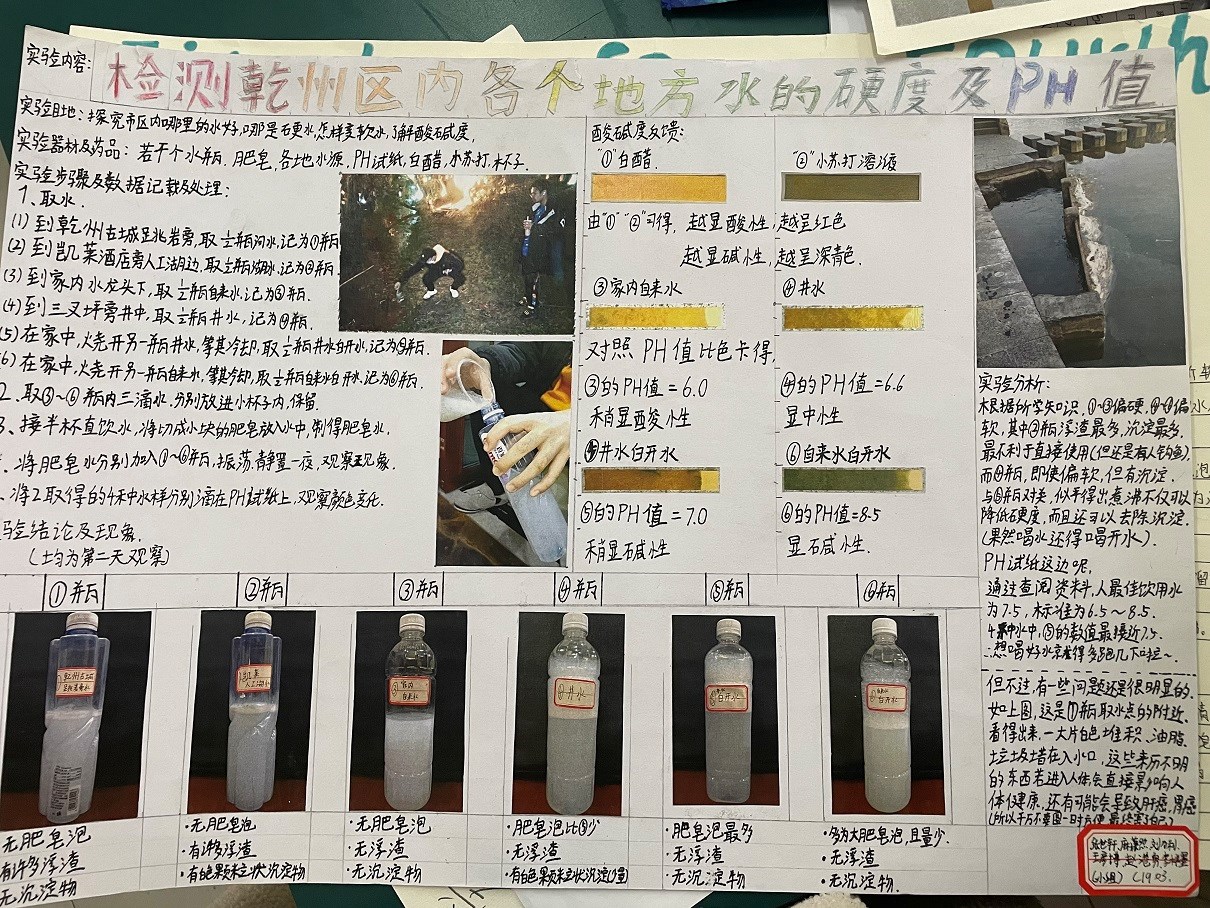 实验内容:
检测乾州区内各个地方水的硬度及PH值
实验目地:探究市区内哪里的水好,哪是石更水,怎样变软水,了解酸碱度,
实验器材及药品:若干个水瓶,肥皂,各地水源,PH试纸,白醋,小苏打,杯子.
实验步骤及数据记载及处理:
1、取水.
(1)到乾州古城呈兆岩旁,取½瓶河水,记为①瓶
(2)到凯莱酒店旁人工湖边,取½瓶湖水,记为②瓶.
(3)到家内水龙头下,取½瓶自来水,记为③瓶.
(4)到三叉坪旁井中,取½瓶井水,记为④瓶.
(5)在家中,烧开另一瓶井水,等其冷却,取½瓶井水白开水,记为⑤瓶.
(6)在家中,烧开另一瓶自来水,等其冷却,取½瓶自来水白开水,记为⑥瓶.
2、取③~⑥瓶内三滴水,分别放进小杯子内,保留.
3、接半杯直饮水,将切成小块的肥皂放入水中,制得肥皂水.
、将肥皂水分别加入①~⑥瓶,振荡,静置一夜,观察现象.
、将2取得的4种中水样分别滴在PH试纸上,观察颜色变化.
验结论及现象.
(均为第二天观察)
酸碱度反馈:
"①"白醋.
"②"小苏打溶液
由"①""②"可得,越显酸性,越呈红色
越显碱性,越呈深青色.
③家内自来水
④井水
对照PH值比色卡得,
③的PH值=6.0
稍显酸性
④的PH值=6.6
显中性
⑤井水白开水
⑥自来水白开水
⑤的PH值=7.0
稍显碱性
⑥的PH值=8.5
显碱性.
实验分析:
根据所学知识,①~③偏硬,④~⑥偏
软,其中②瓶浮渣最多,沉淀最多,
最不利于直接使用(但还是有人钓鱼)
而④瓶,即使偏软,但有沉淀.
与⑤瓶对比,似乎得出煮沸不仅可以
降低硬度,而且还可以去除沉淀.
(果然喝水还得喝开水).
PH试纸这边呢,
通过查阅资料,人最佳饮用水
为7.5,标准为6.5~8.5.
4种水中,⑤的数值最接近7.5.
∴想喝好水就得多跑几下啦~
但不过,有一些问题还是很明显的.
如上图,这是①瓶取水点的附近.
看得出来,一大片白色堆积、油脂、
垃圾堵在入水口,这些来历不明
的东西若进入人体会直接影响人
体健康,还有可能会导致肝癌,胃癌
(所以千万不要图一时方便最终害自己)
①瓶
②瓶
③瓶
④瓶
⑤瓶
⑥瓶
②凯莱
人工湖水
③家内
自来水
④井水
白开水
白开水
无肥皂泡
有许多浮渣
无沉淀物
·无肥皂泡
·有许多浮渣
·有白色颗粒状沉淀物
·无肥皂泡
·无浮渣
·无沉淀物
·肥皂泡比⑤少
·无浮渣
·有白色颗粒状沉淀(少量)
·肥皂泡最多
·无浮渣
·无沉淀物
·多为大肥皂泡,且量少.
·无浮渣
·无沉淀物.
(小组) C1903.